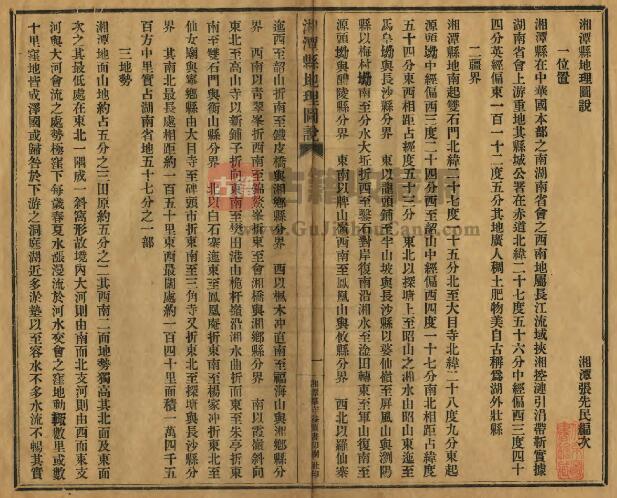 湘潭縣地理圖說
湘潭張先民編次
一位置
湘潭縣在中華國本部之南湖南省會之西南地屬長江流域挾湘控漣引沿帶靳實據
湖南省會上游重地其縣城公署在赤道北緯二十七度五十六分中經偏西三度四十
四分英經偏東一百一十二度五分其地廣人稠土肥物美自古稱為湖外壯縣
二疆界
湘潭縣地南起雙石門北緯二十七度二十五分北至大目寺北緯二十八度九分東起
源頭坳中經偏西三度二十四分西至韶山中經偏西四度一十七分南北相距占緯度
五十四分東西相距占經度五十三分 東北以探塘上至昭山之湘水山昭山東迤至
馬臬坳與長沙縣分界 東以龍頭鋪至半山坡與長沙縣以婆仙嶺至屏風山與瀏陽
縣以梅村坳南至分水大坵折西至鑿石對岸復南沿湘水至淦田轉東至軍山復南至
源頭坳與醴陵縣分界 東南以牌山嘴西南至鳳凰山與攸縣分界 西北以羅仙寨
湘潭縣地理圖說
一
迤西至韶山折南至鐵皮橋與湘鄉縣分界 西以楓木冲直南至福海山與湘鄉縣分
界 西南以青翠峯折西南至錦紋峯折東至會湘橋與湘鄉縣分界 南以霞嶺斜向
東北至高山寺以新鋪子折向東南至樊田港由桅杆嶺沿湘水曲折而東至朱亭折東
南至雙石門與衡山縣分界 北以白石寨迤東至鳳凰庵折東南至楊家冲折東北至
仙女廟與寧鄉縣由大目寺至碑頭市折東南至三角寺又折東北至探塘與長沙縣分
界 其南北最長處相距約一百五十里東西最闊處約一百四十里面積一萬四千五
百方中里實占湖南省地五十七分之一部
三地勢
湘潭地面山地約占五分之三田原約五分之二其西南二面地勢獨高其北面及東面
次之其最低處在東北一隅成一斜窩形故境內大河則由南而北支河則由西而東支
河與大河會流之處勢極窪下每歲春夏水漲漫流於河水交會之窪地動輒數里或數
十里窪地皆成澤國或歸咎於下游之洞庭湖近多淤墊以至容水不多水流不暢其實
古籍
古籍收藏
www.GuJiShouCang.com